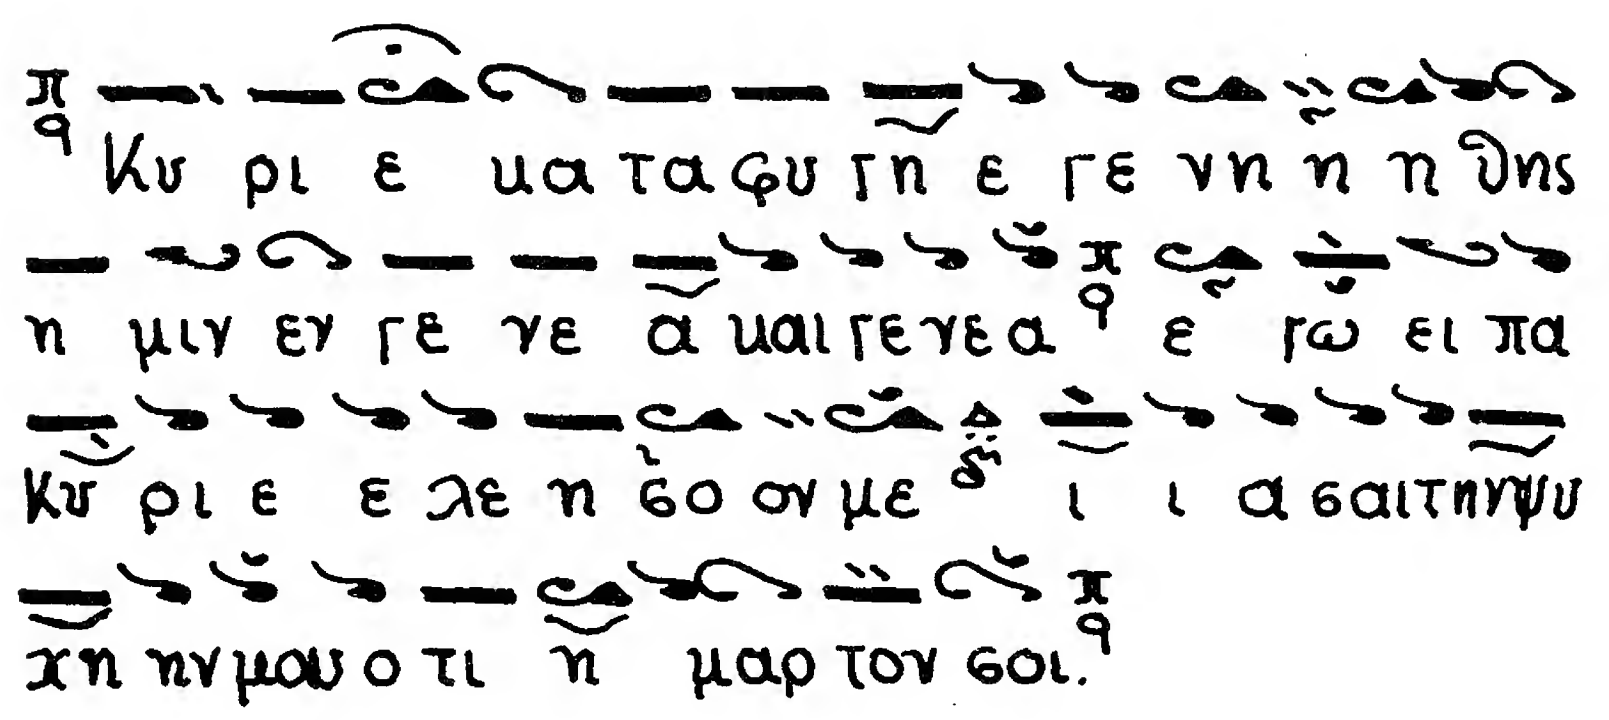 Κυ ρι ε κα τα φυ γη ε γε νη η η θης
η μιν εν γε νε α και γε νε α ε γω ει πα
Κυ ρι ε ε λε η σο ον με ι ι α σαι την ψυ
χη ην μου ο τι η μαρ τον σοι.